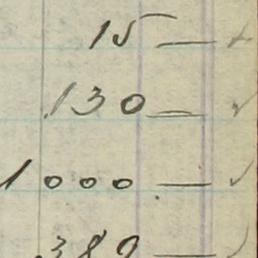 15 —
130 —
1000 — ✓
389 —